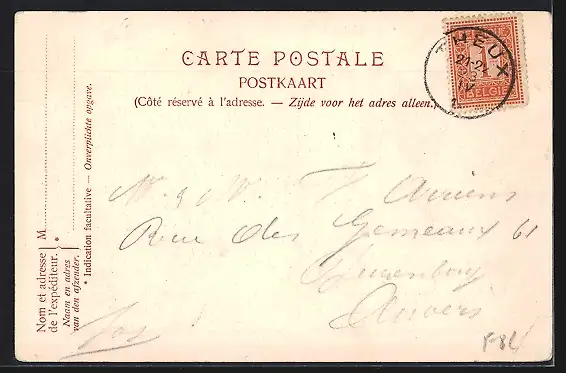 CARTE POSTALE
POSTKAART
(Côté réservé à l'adresse. — Zijde voor het adres alleen.)
THEUX
21-21
IV
1
BELGIË
M. & M.
Rue des Gemeaux 61
Anvers
F86
Nom et adresse
de l'expéditeur.
M
Naam en adres
van den afzender.
*
* Indication facultative — Onverplichte opgave.